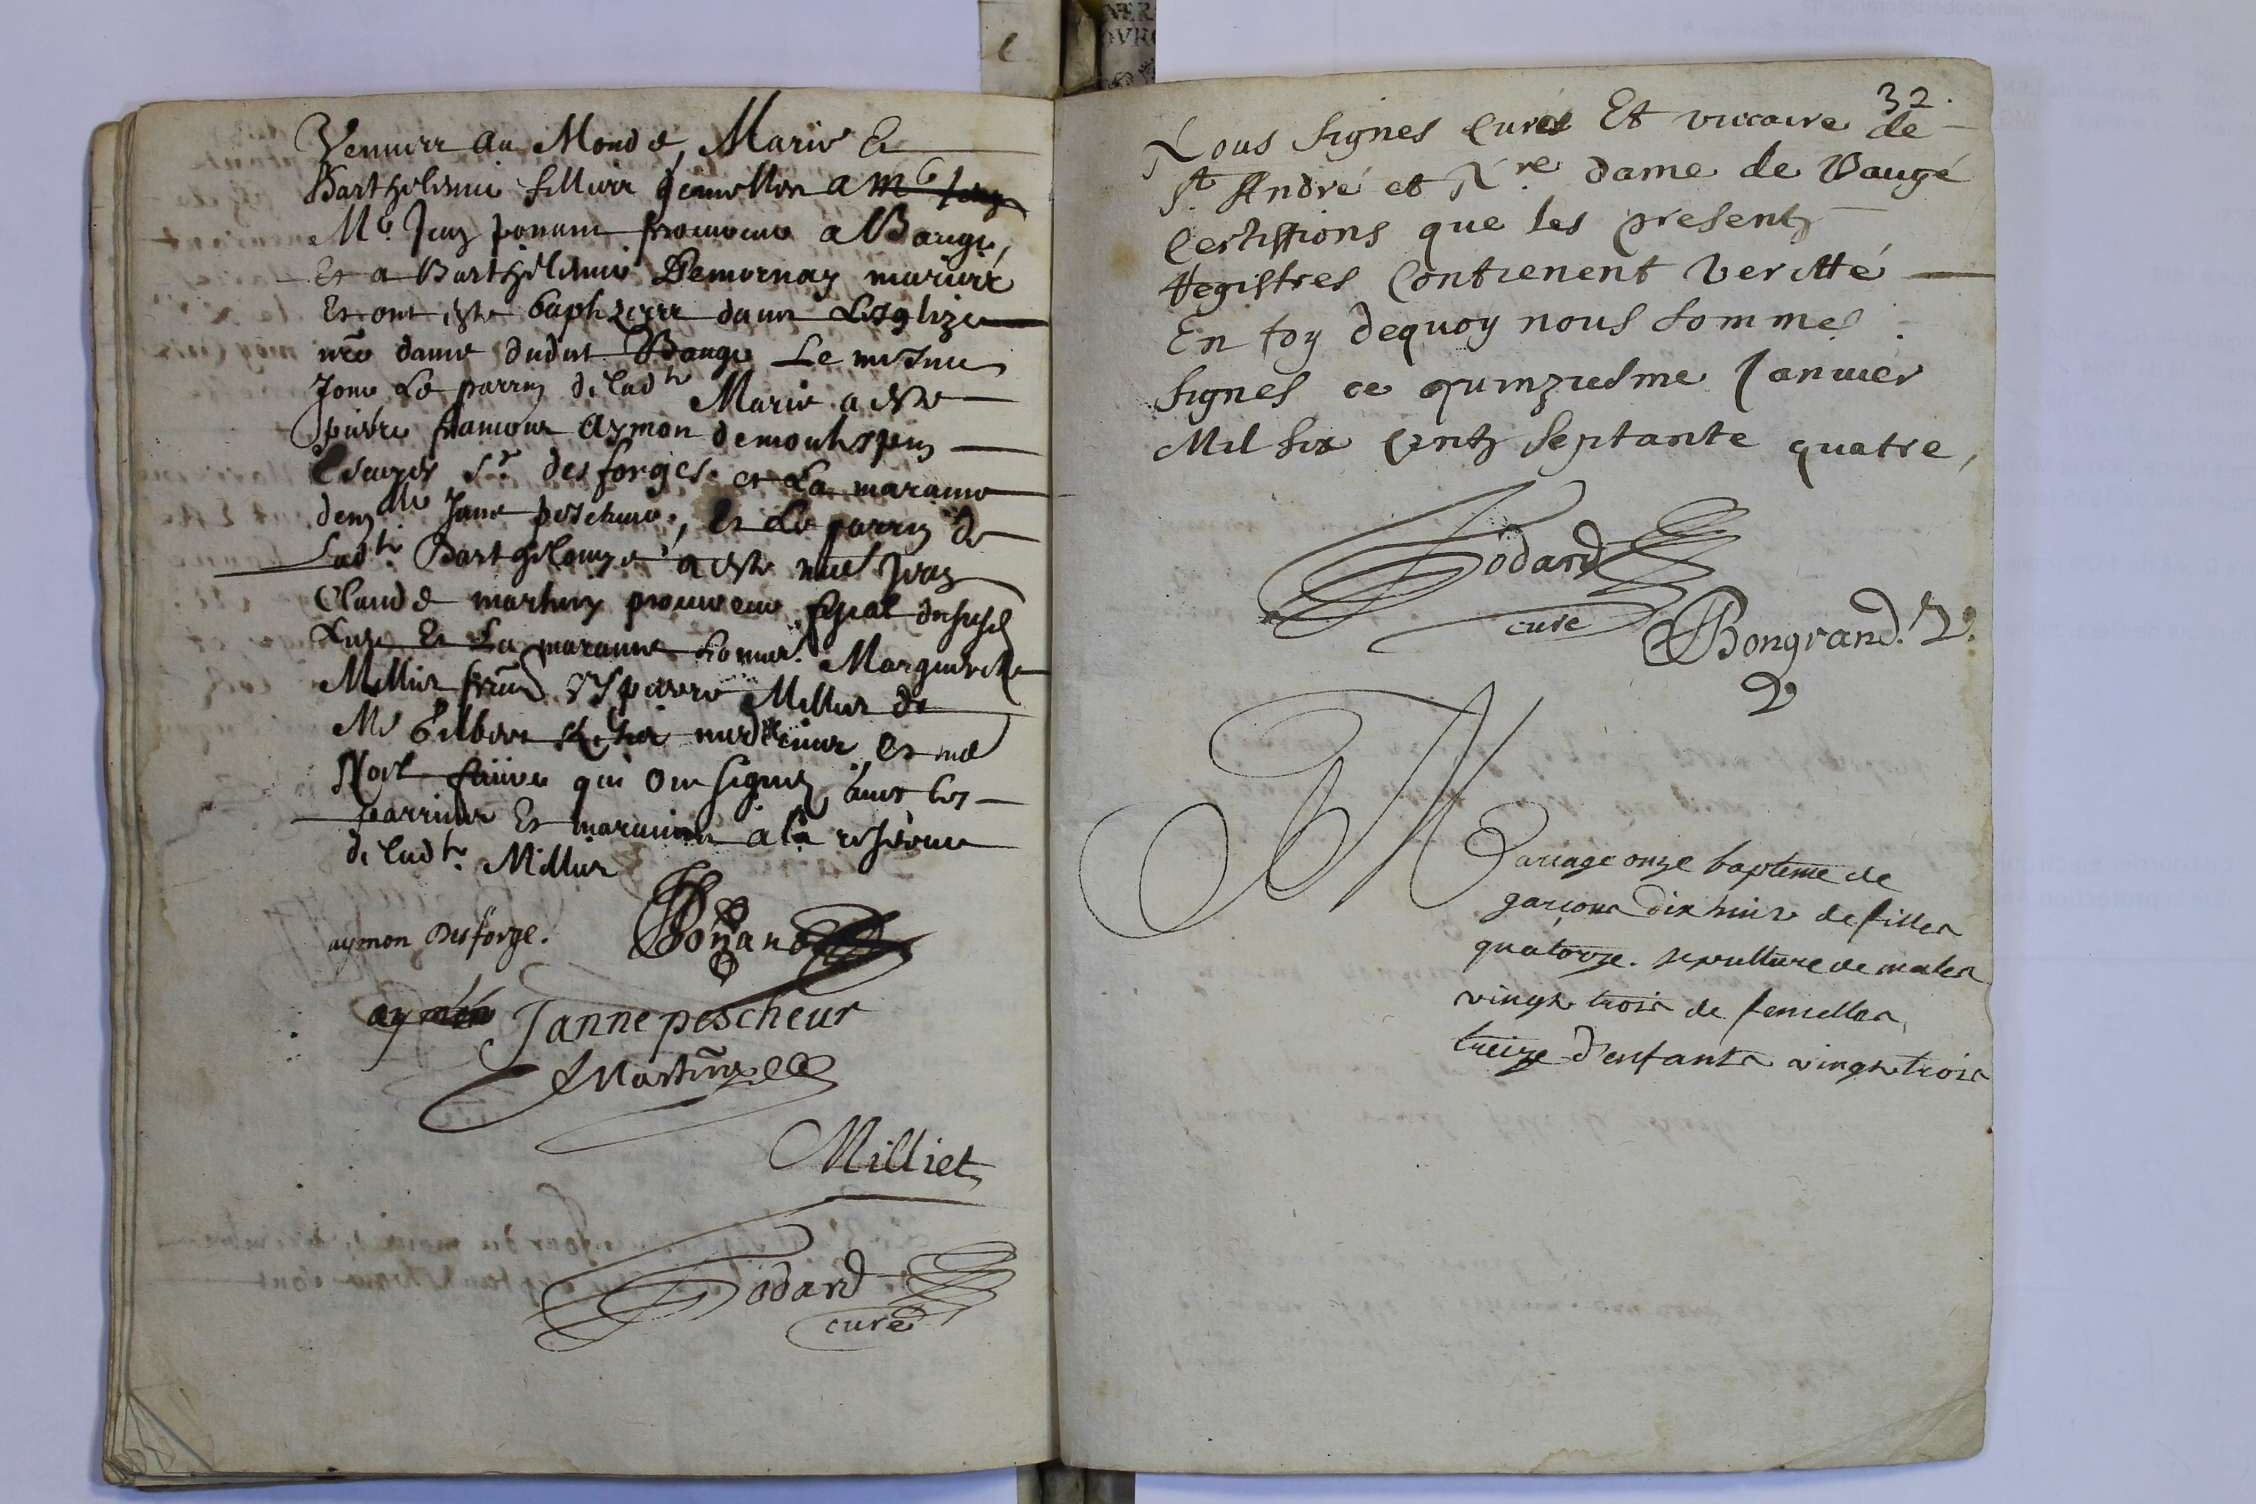 Venues au Monde, Marie Et
Barthelemie filles gemelles a
Me. Jean ponant procureur a Baugé,
Et a Barthelemie Demornay mariés
Et ont esté baptizees dans Lesglize
nre dame dudit Baugé Le mesme
Jour Le parrin de ladte Marie a esté
pierre francois aymon demontespin
Escuyer Sr. des forges et La maraine
demlle Jane pescheur, Et Le parrin de
Ladte Barthelemye a esté me Jean
Claude martin procureur fiscal
Et La maraine honne. Marguerite
Millier
Me Gilbert et me
Noel qui ont signez avec les
parrins Et maraines a la reserve
de ladte. Millier
aymon Desforge.
Ponand
aymon
Janne pescheur
Martin
Milliet
Godard
curé
32.
Nous signes Curés Et viccaire de
St. André et Nre dame de Baugé
Certiffions que les presentz
Registres Contienent Veritté
En foy dequoy nous sommes
signes ce quinziesme Janvier
Mil six Centz septante quatre,
Godard
curé
Bongrand. V.
Mariage onze bapteme de
garcons dix huit de filles
quatorze. sepulture de males
vingt trois de femelles
treize d'enfants vingt trois